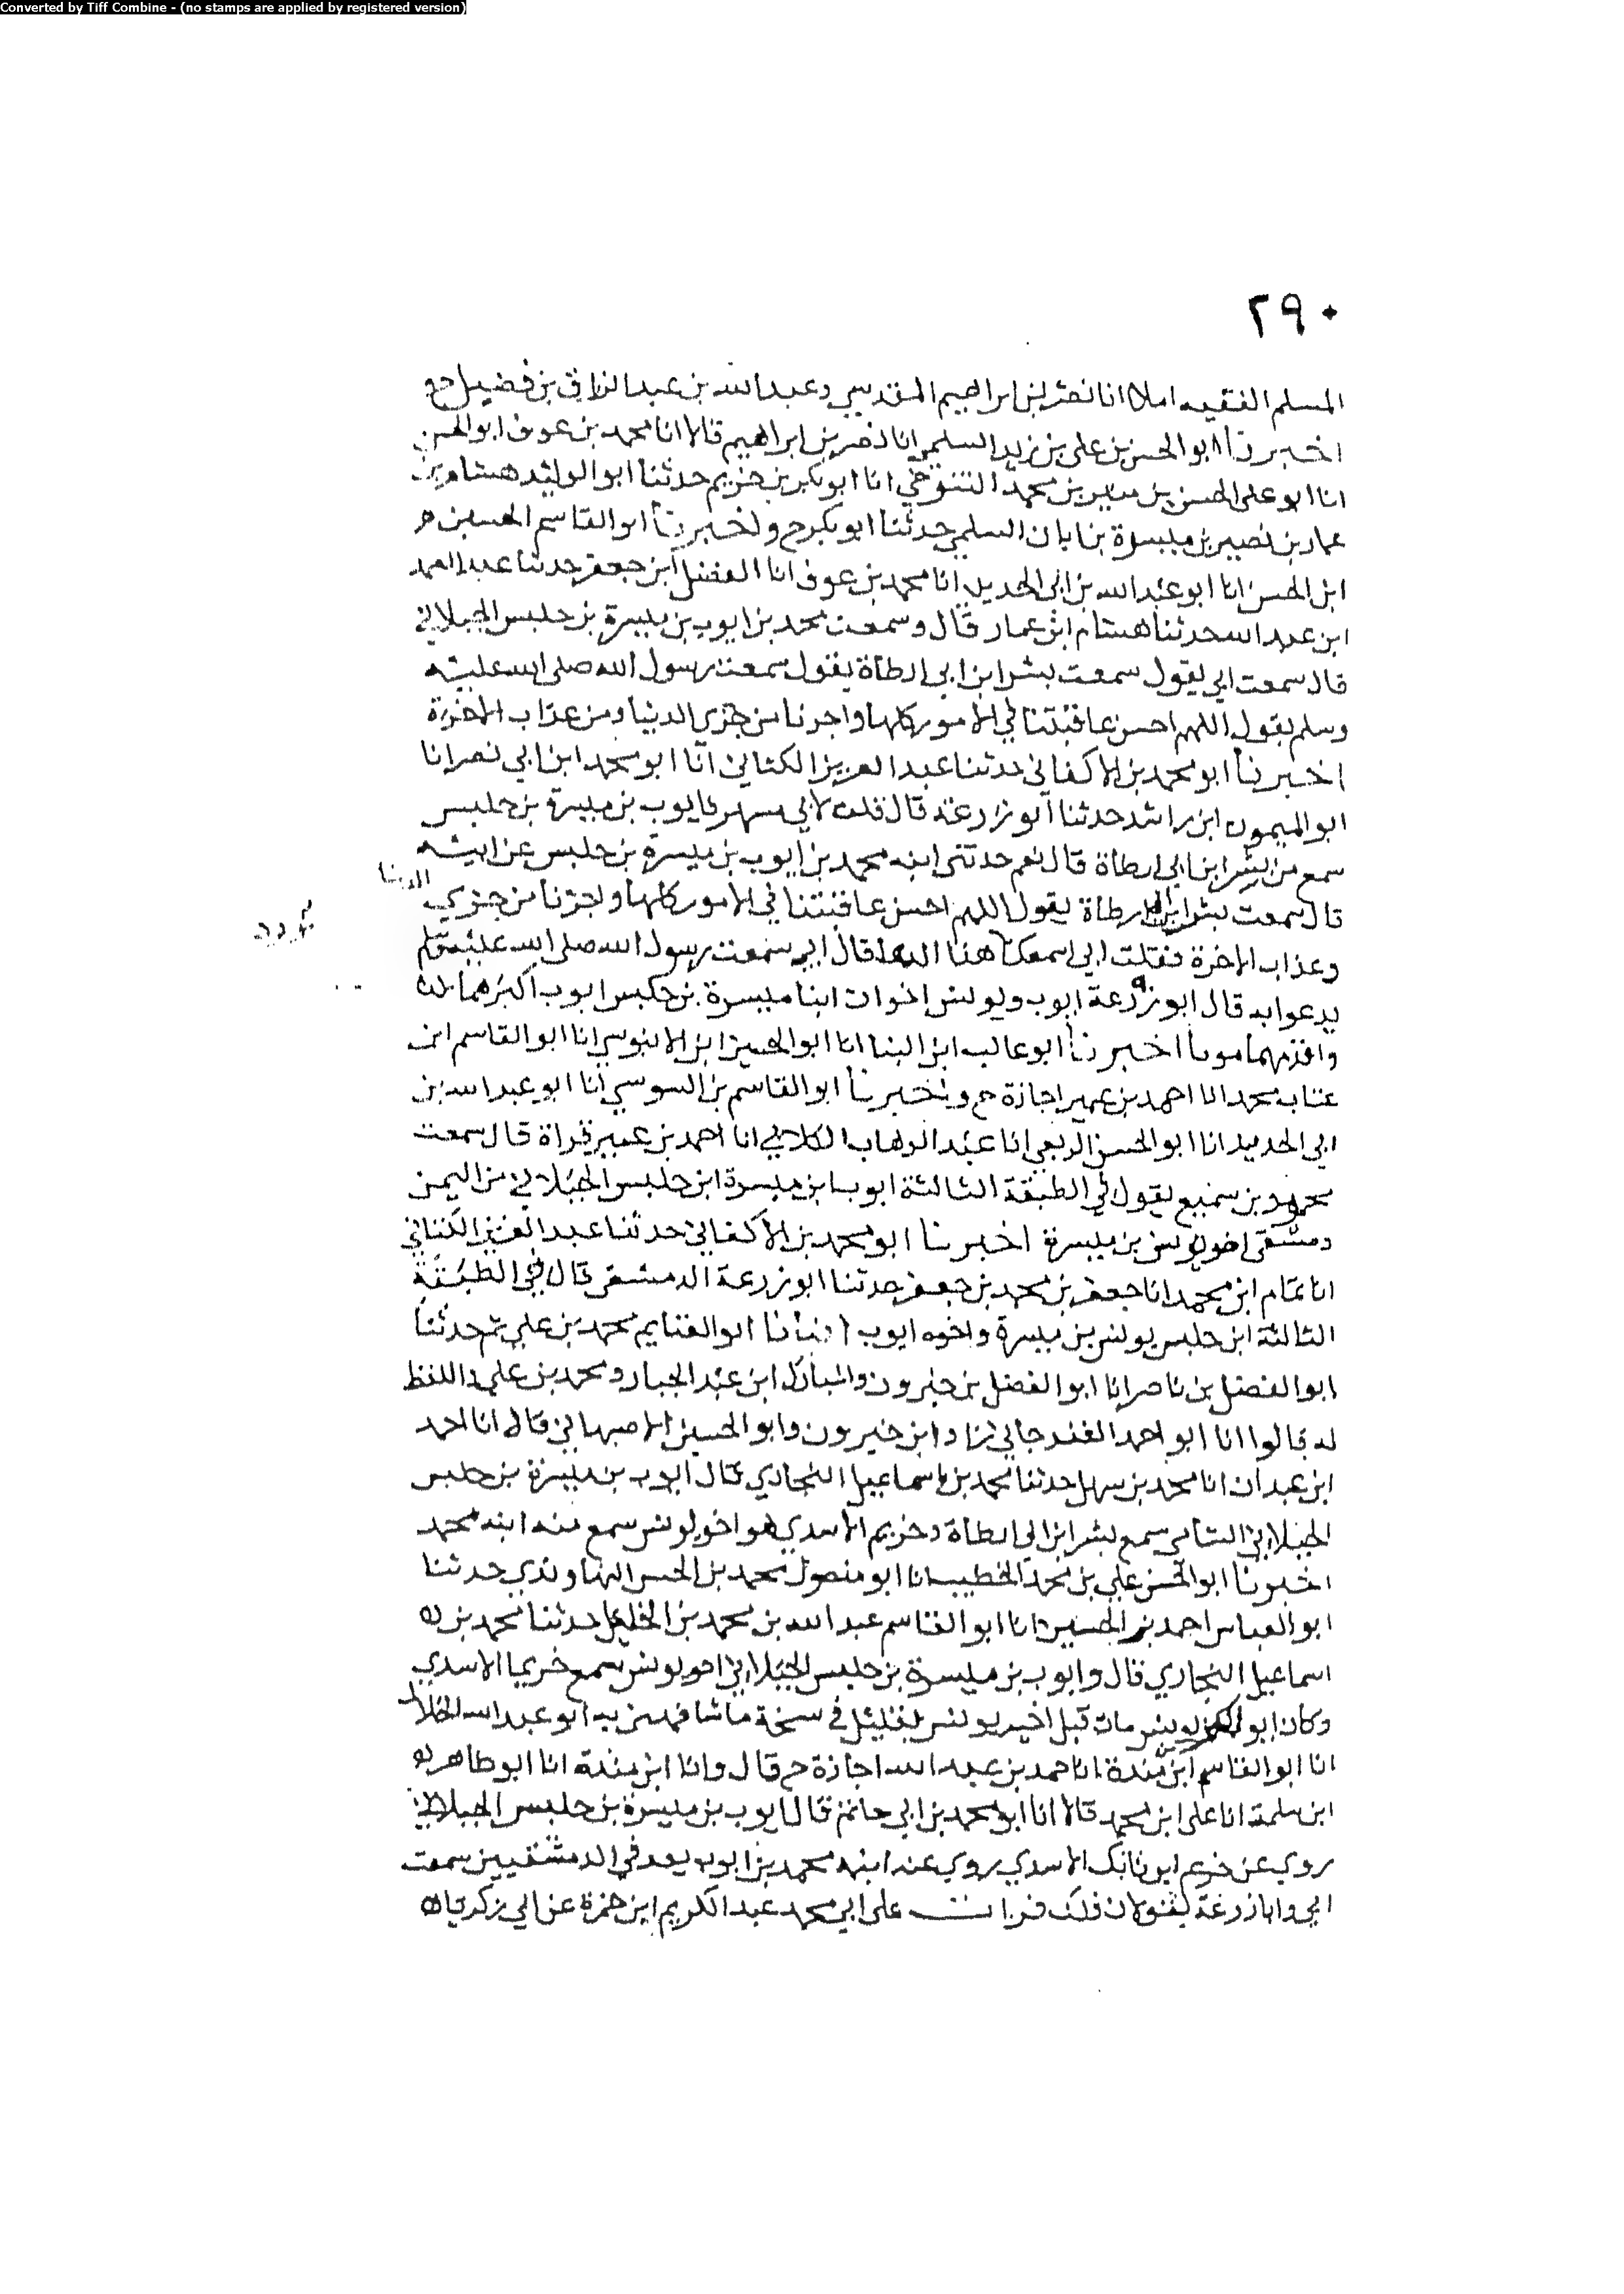 Converted by Tiff Combine - (no stamps are applied by registered version)
٢٩٠
المسلم الفقيه املاا انا نصر بن ابراهيم المقدسي وعبد الله بن عبد الرزاق بن فضيل ح و
اخبرنا ابو الحسن بن علي بن زيد السلمي انا نصر بن ابراهيم قالا انا محمد بن عوف ابو الحسن
انا ابو علي الحسن بن منير بن محمد التنوخي انا ابو بكر بن خزيم حدثنا ابو الوليد هشام بن
عمار بن نصير بن ميسرة بن ابان السلمي حدثنا ابو بكر ح واخبرنا ابو القاسم الحسين
ابن الحسن انا ابو عبد الله بن ابي الحديد انا محمد بن عوف انا الفضل ابن جعفر حدثنا عبد الصمد
ابن عبد الله حدثنا هشام ابن عمار قال وسمعت محمد بن ايوب بن ميسرة بن حلبس الجبلاني
قال سمعت ابي يقول سمعت بشر ابن ابي ارطاة يقول سمعت رسول الله صلى الله عليه
وسلم يقول اللهم احسن عاقبتنا في الامور كلها واجرنا من خزي الدنيا ومن عذاب الاخرة
اخبرنا ابو محمد بن الاكفاني حدثنا عبد العزيز الكتاني انا ابو محمد ابن ابي نصر انا
ابو الميمون ابن راشد حدثنا ابو زرعة قال قلت لابي مسهر فايوب بن ميسرة بن حلبس
سمع من بشر ابن ابي ارطاة قال نعم حدثني ابنه محمد بن ايوب بن ميسرة بن حلبس عن ابيه
قال سمعت بشر ابن ابي ارطاة يقول اللهم احسن عاقبتنا في الامور كلها واجرنا من خزي الدنيا
وعذاب الاخرة فقلت اني اسمعك هنا الدعا قال اني سمعت رسول الله صلى الله عليه وسلم
يدعوا به قال ابو زرعة ايوب ويونس اخوان ابنا ميسرة بن حلبس ايوب اكبرهما
واقدمهما موتا اخبرنا ابو غالب ابن البنا انا ابو الحسين ابن الابنوسي انا ابو القاسم ابن
عتاب محمد انا احمد بن عمير اجازة ح واخبرنا ابو القاسم بن السوسي انا ابو عبد الله بن
ابي الحديد انا ابو الحسن الربعي انا عبد الوهاب الكلابي انا احمد بن عمير قراة قال سمعت
محمود بن سميع يقول في الطبقة الثالثة ايوب ابن ميسرة ابن حلبس الجبلاني من اليمن
دمشقي اخو يونس بن ميسرة اخبرنا ابو محمد بن الاكفاني حدثنا عبد العزيز الكتاني
انا تمام ابن محمد انا جعفر بن محمد بن جعفر حدثنا ابو زرعة الدمشقي قال في الطبقة
الثالثة ابن حلبس يونس بن ميسرة واخوه ايوب انبانا ابو الغنايم محمد بن علي ثم حدثنا
ابو الفضل بن ناصر انا ابو الفضل بن خيرون والمبارك ابن عبد الجبار ومحمد بن علي واللفظ
له قالوا انا ابو احمد الغندجاني زاد ابن خيرون وابو الحسين الاصبهاني قالا انا احمد
ابن عبدان انا محمد بن سهل حدثنا محمد بن اسماعيل البخاري قال ايوب بن ميسرة بن حلبس
الجبلاني الشامي سمع بشر ابن ابي ارطاة وخريم الاسدي هو اخو يونس سمع منه ابنه محمد
اخبرنا ابو الحسن علي بن محمد الخطيب انا ابو منصور محمد بن الحسن النهاوندي حدثنا
ابو العباس احمد بن الحسين انا ابو القاسم عبد الله بن محمد بن الخليل حدثنا محمد بن
اسماعيل البخاري قال وايوب بن ميسرة بن حلبس الجبلاني اخو يونس سمع خريما الاسدي
وكان ابو يونس مات قبل اخيه يونس بقليل في نسخة ما شافهني به ابو عبد الله الخلال
انا ابو القاسم ابن مندة انا حمد بن عبد الله اجازة ح قال وانا ابن مندة انا ابو طاهر
ابن سلمة انا علي ابن محمد قالا انا ابو محمد بن ابي حاتم قال ايوب بن ميسرة بن حلبس الجبلاني
روي عن خريم ابن فاتك الاسدي روي عنه ابنه محمد بن ايوب يعد في الدمشقيين سمعت
ابي وابا زرعة يقولان ذلك قرات على ابي محمد عبد الكريم ابن حمزة عن ابي زكريا